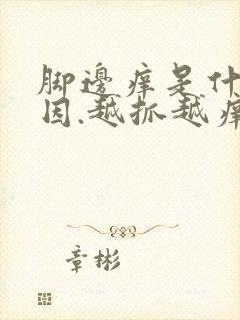 脚邊痒是什
因.越抓越痒
章彬